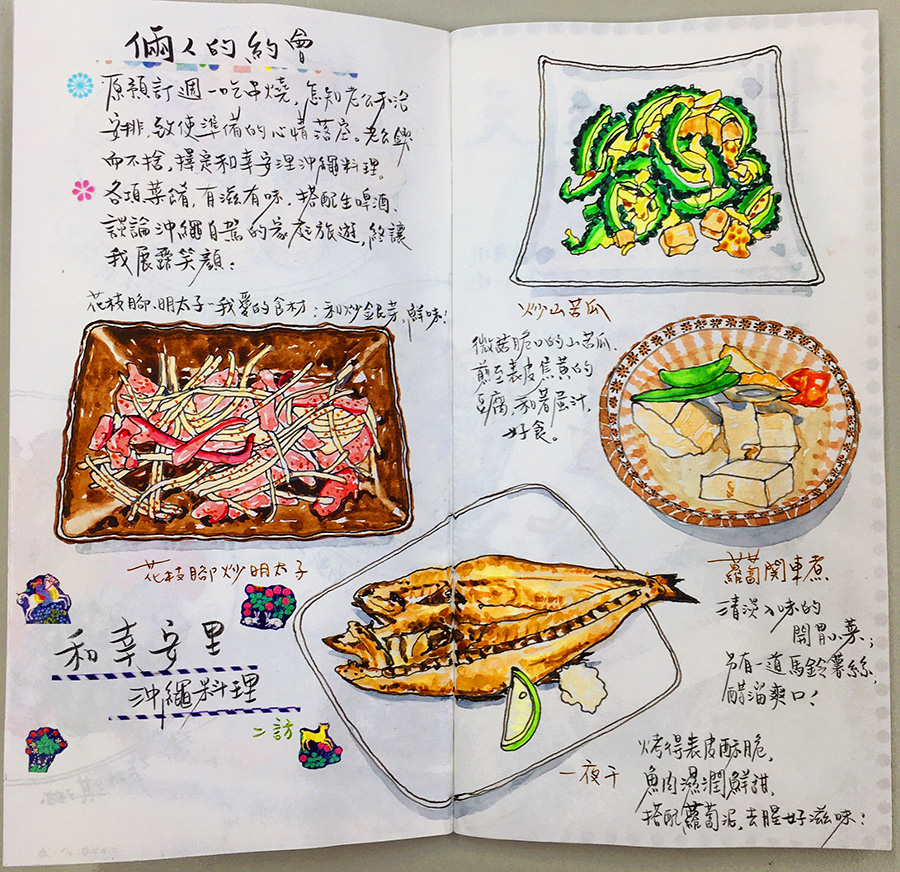 倆人的約會
原預訂週一吃串燒，怎知老公未洽
安排，致使準備的心情落底。老公鍥
而不捨，擇定和幸安里沖繩料理。
各項菜餚，有滋有味，搭配生啤酒、
談論沖繩自駕的家庭旅遊，終讓
我展露笑顏；
花枝腳、明太子~我愛的食材；和炒銀芽，鮮味！
花枝腳炒明太子
和幸安里
沖繩料理
二訪
炒山苦瓜
微菇脆口的山苦瓜、
煎至表皮焦黃的
豆腐，和著蛋汁，
好食。
蘿蔔関東煮
清淡入味的
開胃小菜；
另有一道馬鈴薯絲，
醋溜爽口！
一夜干
烤得表皮酥脆，
魚肉濕潤鮮甜，
搭配蘿蔔泥，去腥好滋味！